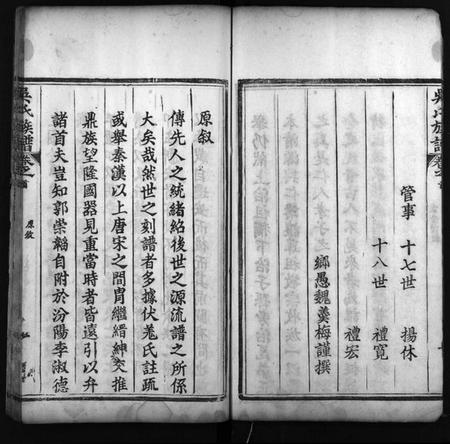 吳氏族譜 卷之首
管事 十七世 揚休
十八世 禮寬
禮宏
鄉愚魏羹梅謹撰
原叙
傳先人之統緒紹後世之源流譜之所係
大矣哉然世之刻譜者多據伏羲氏註疏
或舉秦漢以上唐宋之間冑繼縉紳交推
鼎族望隆國器見重當時者皆遠引以弁
諸首夫豈知郭崇韜自附於汾陽李淑德
吳氏族譜 卷之首
原敘